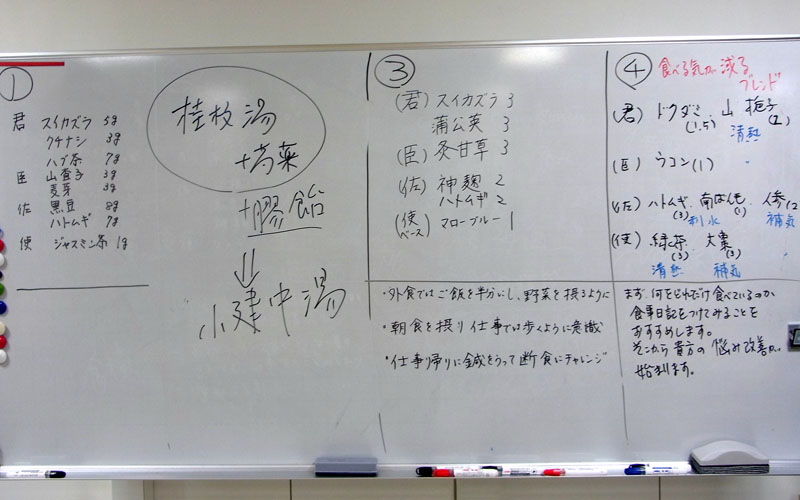 ①
君 スイカズラ 5g
クチナシ 3g
ハブ茶 7g
臣 山査子 3g
麦芽 3g
佐 黒豆 8g
ハトムギ 7g
使 ジャスミン茶 1g
桂枝湯
+芍薬
+膠飴
⇓
小建中湯
③
(君) スイカズラ 3
蒲公英 3
(臣) 炙甘草 3
(佐) 神麹 2
ハトムギ 2
(使 ベース) マローブルー 1
・外食ではご飯を半分にし、野菜を摂るように
・朝食を摂り仕事では歩くように意識
・仕事帰りに鍼をうって断食にチャレンジ
④ 食べる気が減る
ブレンド
(君) ドクダミ 山梔子
(1.5) (1)
清熱
(臣) ウコン(1)
(佐) ハトムギ 南ばんもう 人参(2
(3) (1)
利水 補気
(使) 緑茶 大棗
(3) (3)
清熱 補気
まず、何をどれだけ食べているのか
食事日記をつけてみることを
おすすめします。
そこから貴方の悩み改善が
始まります。